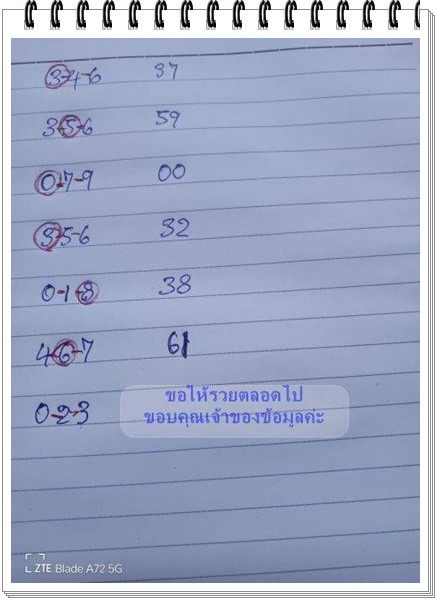 3-4-6 37
3-5-6 59
0-7-9 00
3-5-6 32
0-1-8 38
4-6-7 61
0-2-3
ขอให้รวยตลอดไป
ขอบคุณเจ้าของข้อมูลค่ะ
ZTE Blade A72 5G